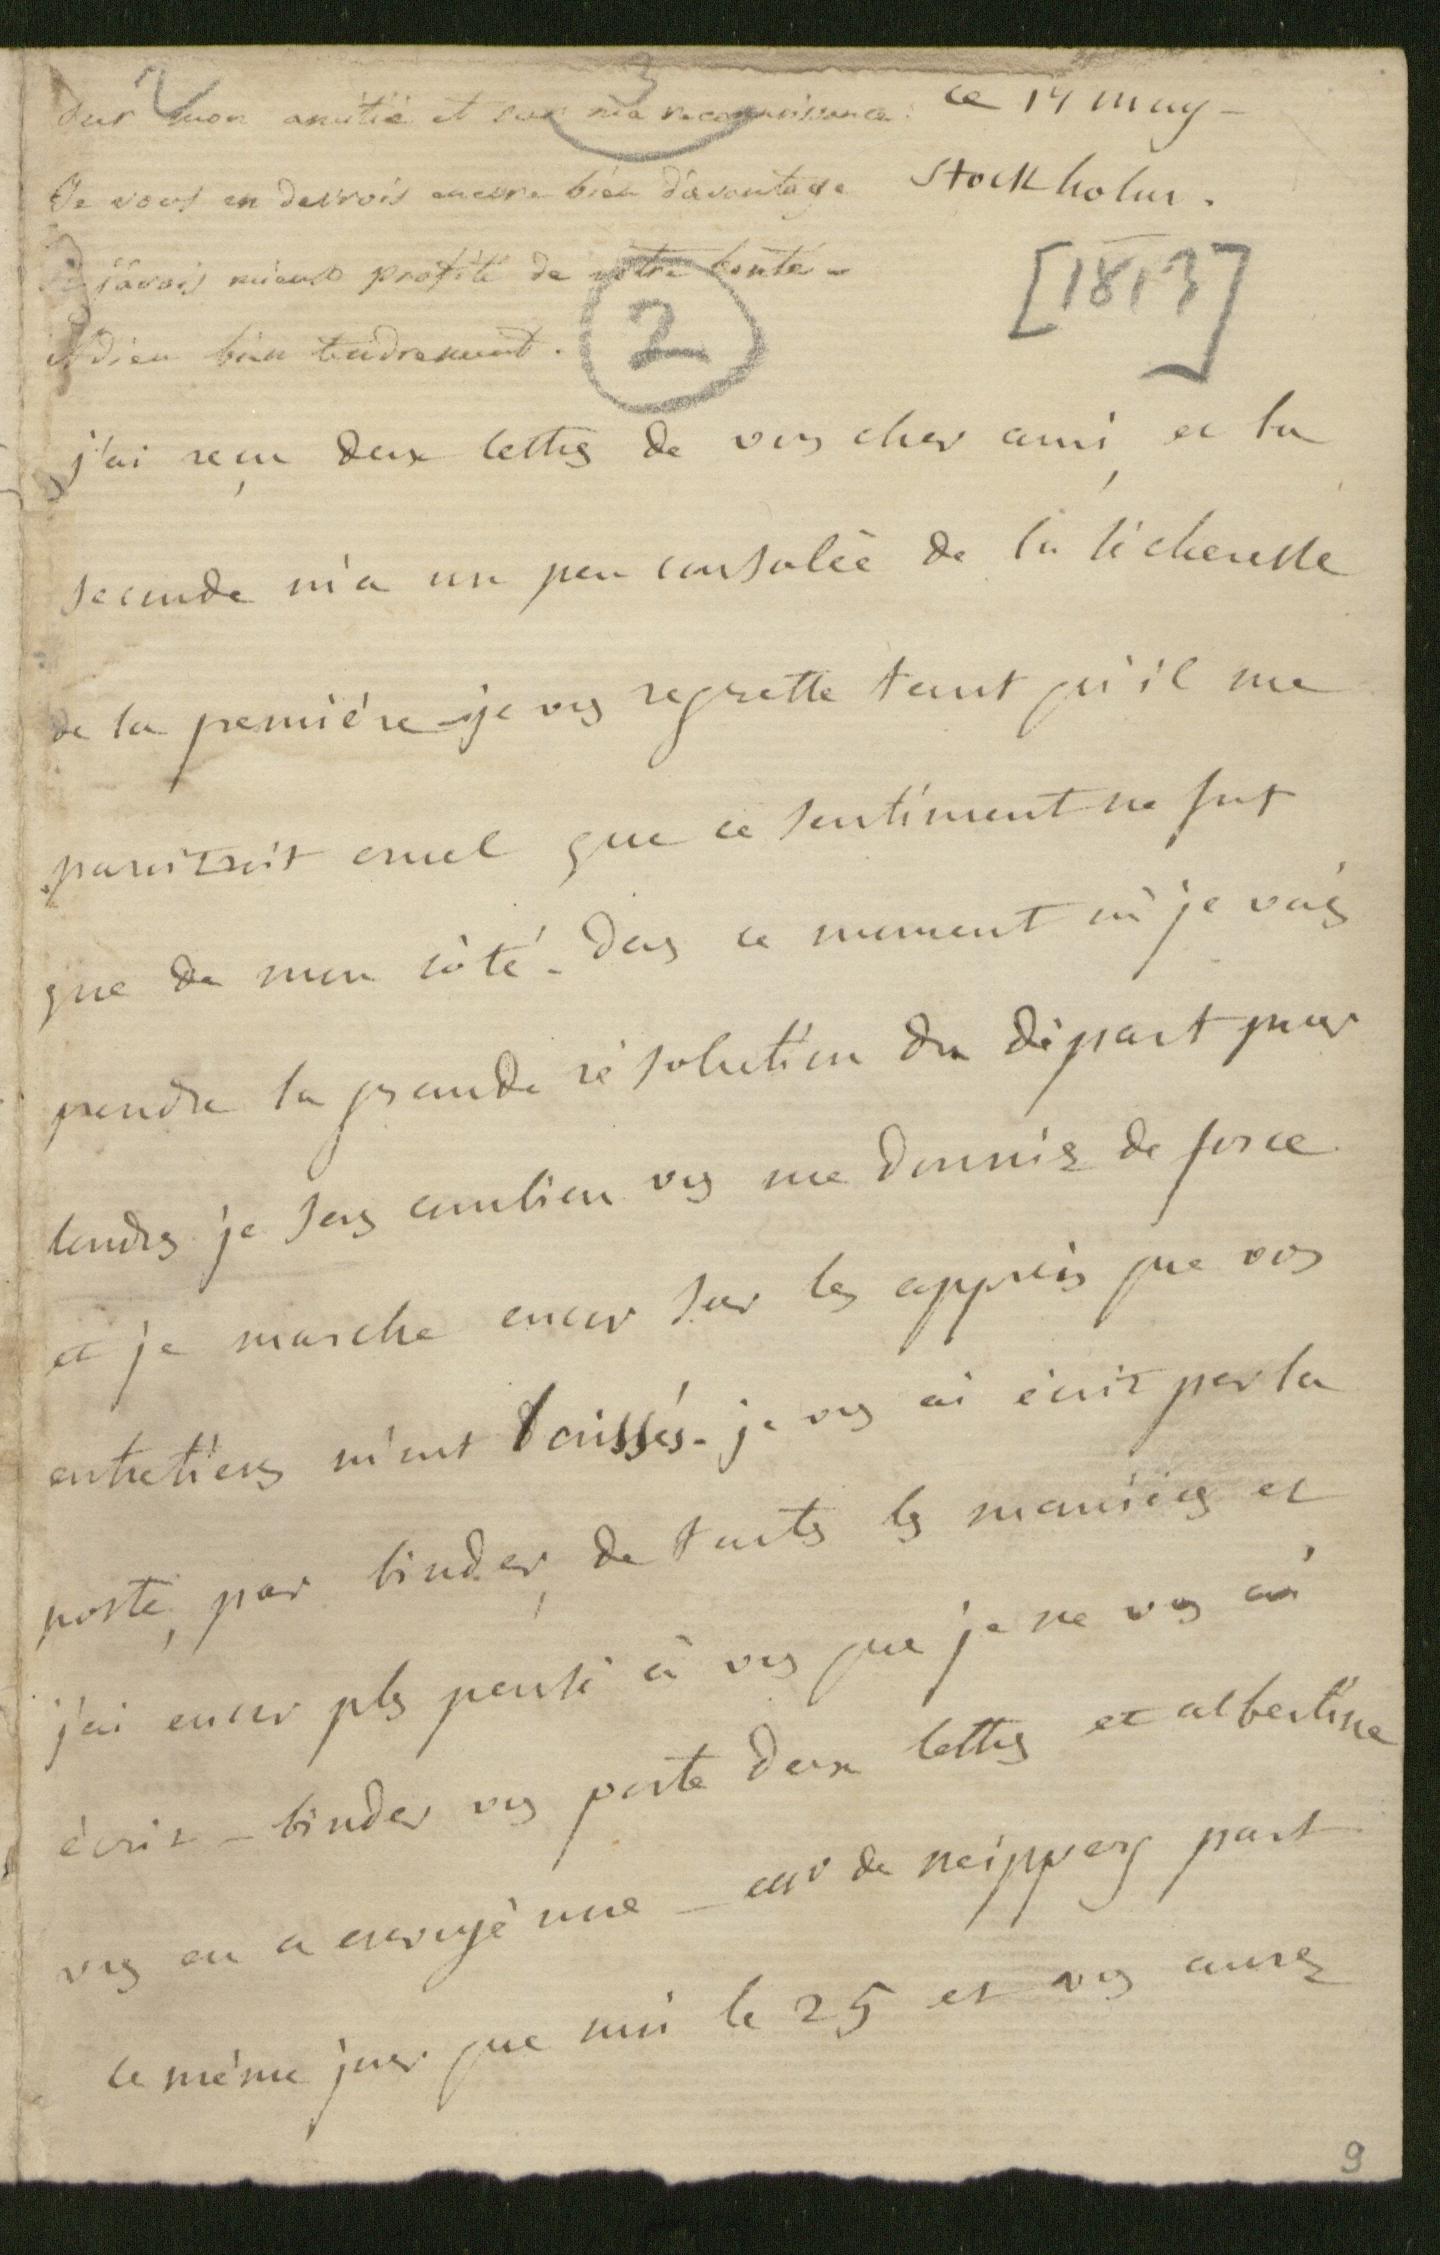 Sur mon amitié et sur ma reconnoissance.
Je vous en devrois encore bien d'avantage
si j'avois mieux profité de votre bonté -
Adieu bien tendrement.
3
2
ce 14 may -
Stockholm.
[1813]
j'ai reçu deux lettres de vous cher ami, et la
seconde m'a un peu consolée de la sécheresse
de la première - je vous regrette tant qu'il me
paroitroit cruel que ce sentiment ne fut
que de mon côté - dans ce moment où je vais
prendre la grande résolution du départ pour
londres je sens combien vous me donniez de force
et je marche encor sur les appuis que vos
entretiens m'ont laissés - je vous ai écrit par la
poste, par binder, de toutes les manières et
j'ai encor plus pensé à vous que je ne vous ai
écrit - binder vous porte deux lettres et albertine
vous en a envoyé une - mr de neipperg part
le même jour que moi le 25 et vous aurez
9